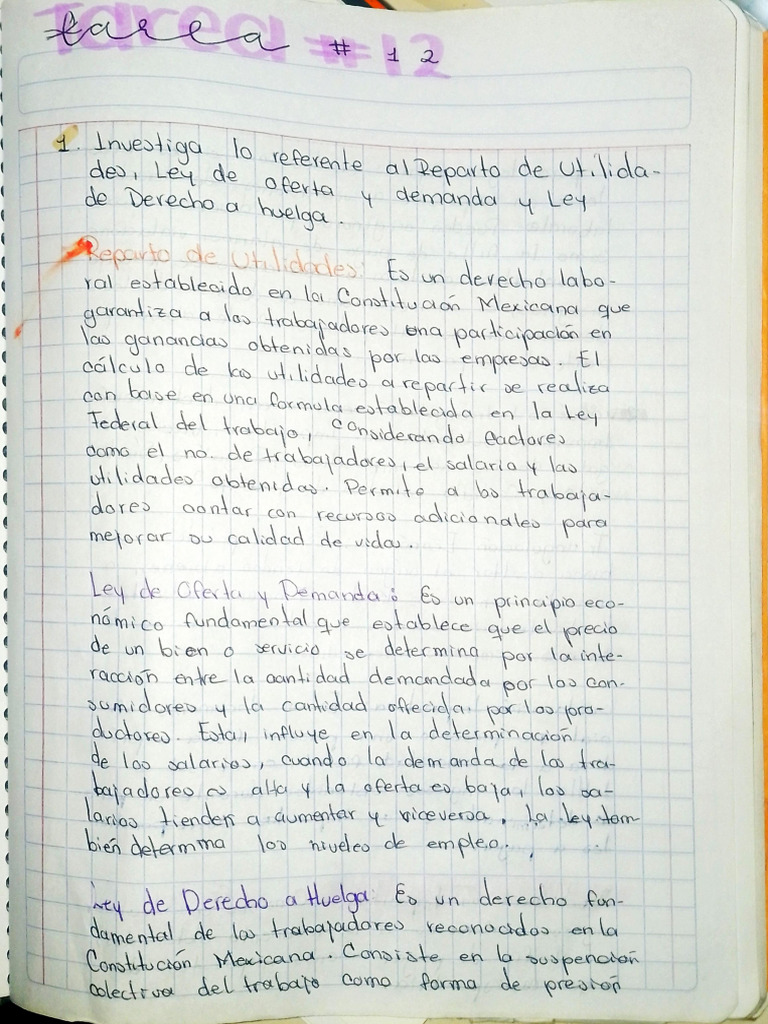 Tarea #12
tarea # 12
1. Investiga lo referente al Reparto de Utilida-
des, Ley de oferta y demanda y Ley
de Derecho a huelga.
Reparto de Utilidades: Es un derecho labo-
ral establecido en la Constitución Mexicana que
garantiza a los trabajadores una participación en
las ganancias obtenidas por las empresas. El
cálculo de las utilidades a repartir se realiza
con base en una formula establecida en la Ley
Federal del trabajo, considerando factores
como el no. de trabajadores, el salario y las
utilidades obtenidas. Permite a los trabaja-
dores contar con recursos adicionales para
mejorar su calidad de vida.
Ley de Oferta y Demanda: Es un principio eco-
nómico fundamental que establece que el precio
de un bien o servicio se determina por la inte-
racción entre la cantidad demandada por los con-
sumidores y la cantidad ofrecida por los pro-
ductores. Esta, influye en la determinación
de los salarios, cuando la demanda de los tra-
bajadores es alta y la oferta es baja, los sa-
larios tienden a aumentar y viceversa. La ley tam
bién determina los niveles de empleo.
Ley de Derecho a Huelga: Es un derecho fun-
damental de los trabajadores reconocidos en la
Constitución Mexicana. Consiste en la suspención
colectiva del trabajo como forma de presión